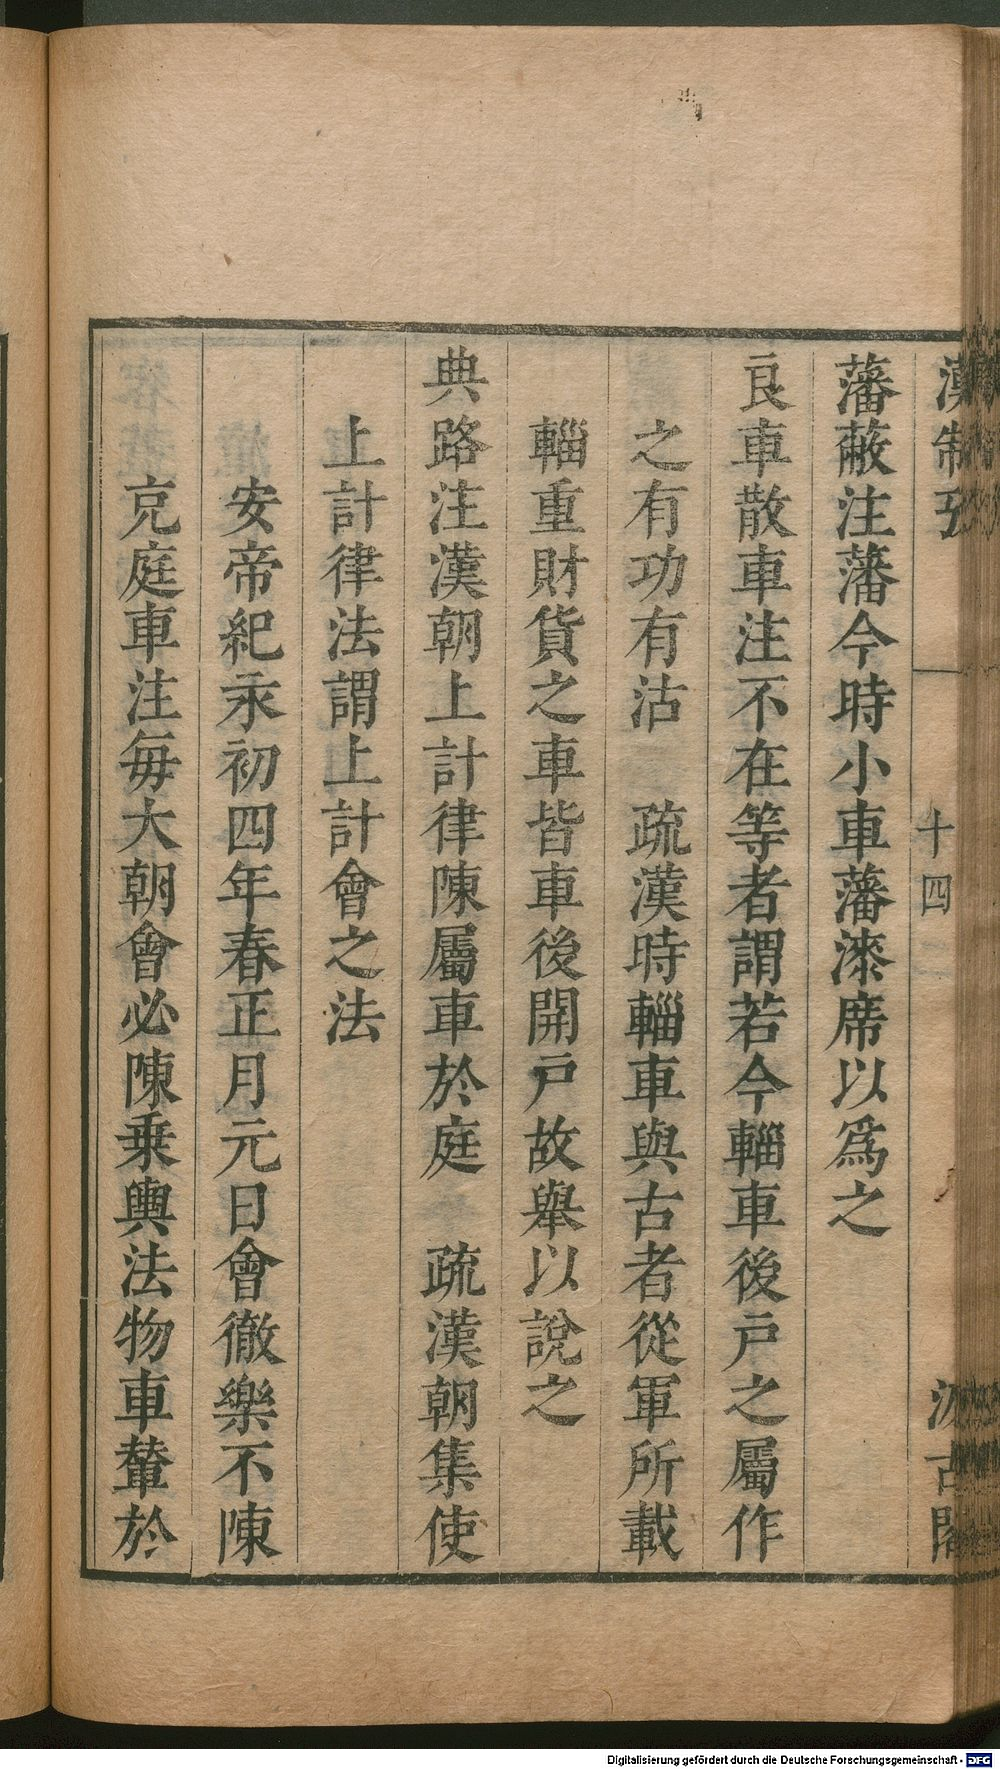 漢制攷
十四
汲古閣
藩蔽注藩今時小車藩漆席以爲之
良車散車注不在等者謂若今輜車後戸之屬作
之有功有沽　疏漢時輜車與古者從軍所載
輜重財貨之車皆車後開戸故舉以說之
典路注漢朝上計律陳屬車於庭　疏漢朝集使
上計律法謂上計會之法
安帝紀永初四年春正月元日會徹樂不陳
充庭車注每大朝會必陳乗輿法物車輦於
Digitalisierung gefördert durch die Deutsche Forschungsgemeinschaft - DFG